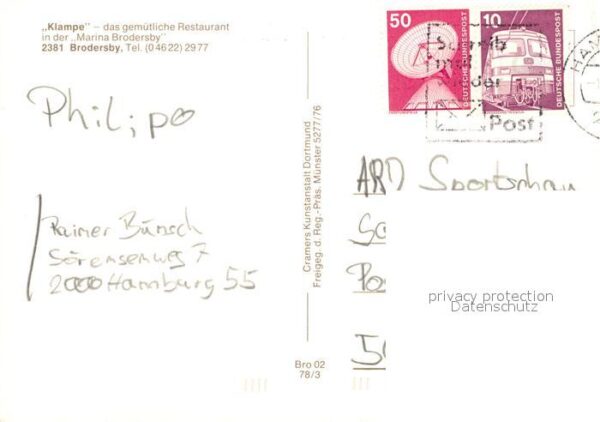 „Klampe“ – das gemütliche Restaurant
in der „Marina Brodersby“
2381 Brodersby, Tel. (0 46 22) 29 77
Philipo
Rainer Bünsch
Sörensenweg 7
2000 Hamburg 55
Cramers Kunstanstalt Dortmund
Freigeg. d. Reg.-Präs. Münster 5277/76
Bro 02
78/3
50
DEUTSCHE BUNDESPOST
10
DEUTSCHE BUNDESPOST
Schreib
mal
wieder
Post
HAM
ARD
Po
privacy protection
Datenschutz